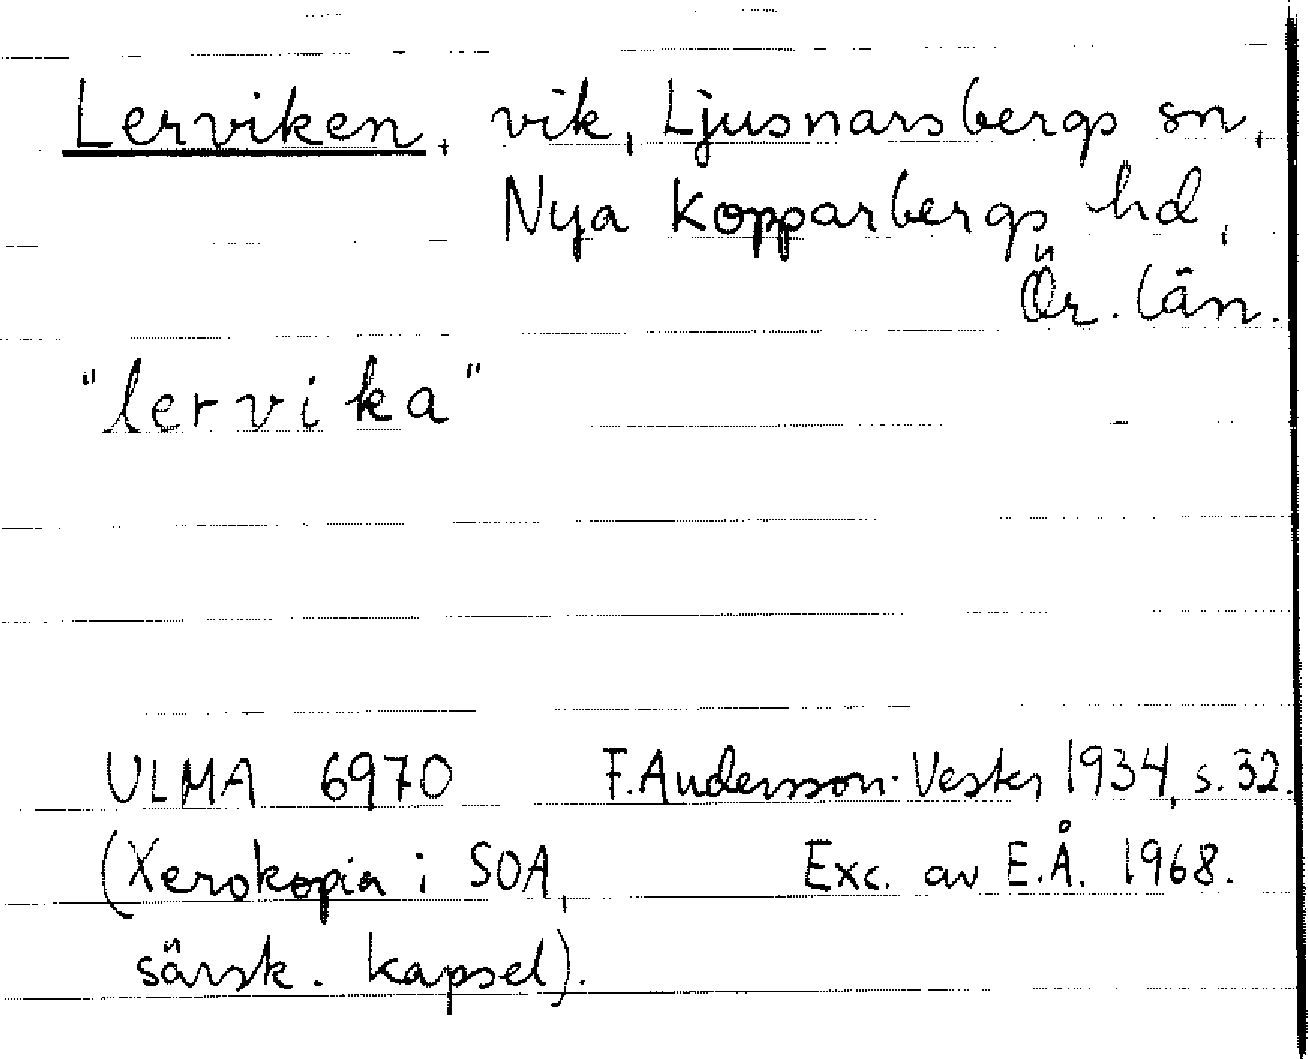 Lerviken, vik, Ljusnarsbergs sn,
Nya Kopparbergs hd,
Ör. län.
"lervika"
ULMA 6970 F. Andersson-Vester 1934, s. 32.
(Xerokopia i SOA, Exc. av E.Å. 1968.
särsk. kapsel).